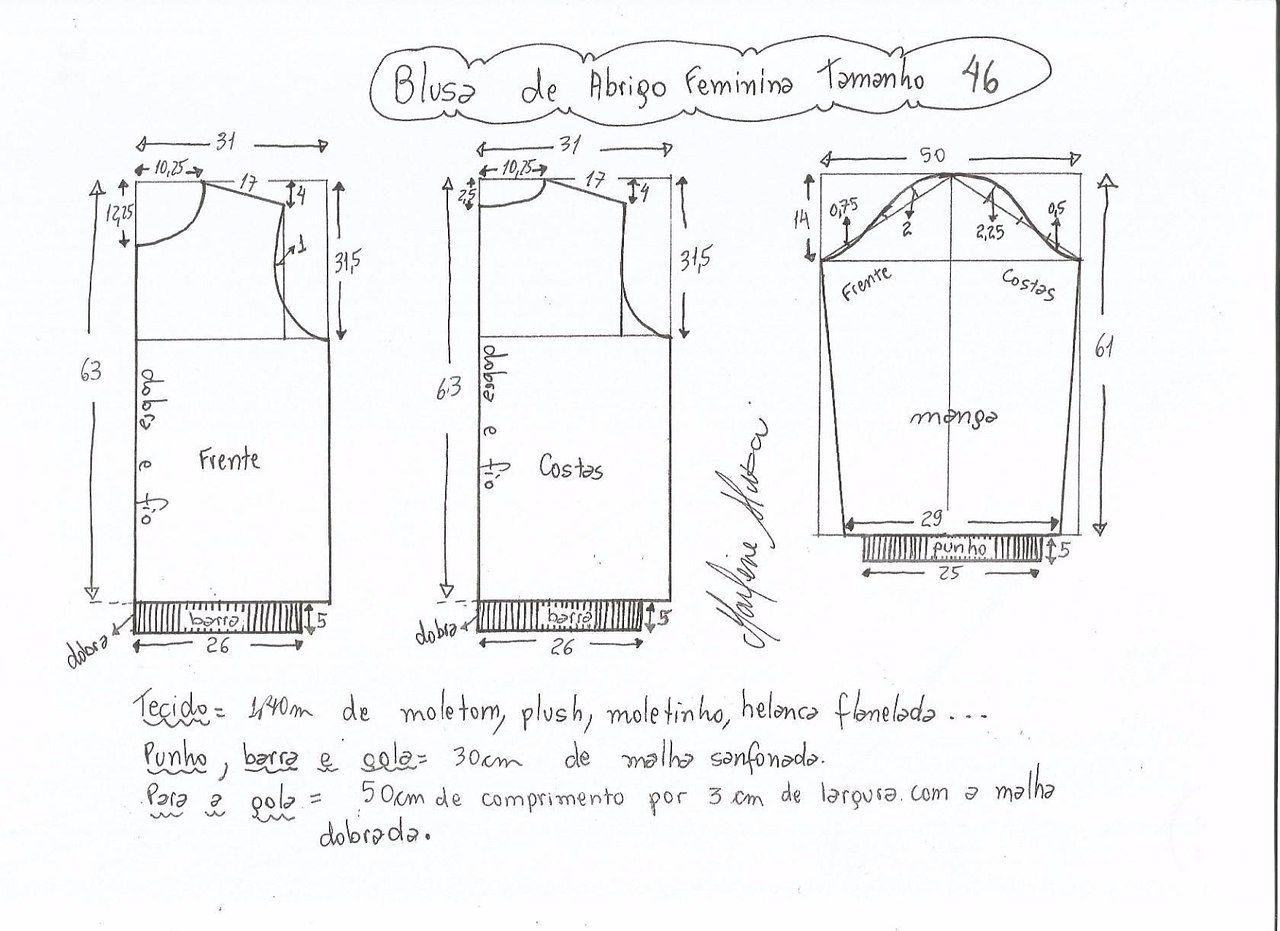 Blusa de Abrigo Feminina Tamanho 46
31
10,25
17
4
12,25
1
31,5
63
dobra e fio
Frente
barra
5
dobra
26
31
10,25
17
4
2,5
31,5
63
dobra e fio
Costas
barra
5
dobra
26
50
14
0,75
2
2,25
0,5
Frente
Costas
61
manga
29
punho
5
25
Marlene Mukai
Tecido = 1,40m de moletom, plush, moletinho, helanca flanelada ...
Punho, barra e gola = 30cm de malha sanfonada.
Para a gola = 50cm de comprimento por 3 cm de largura com a malha
dobrada.